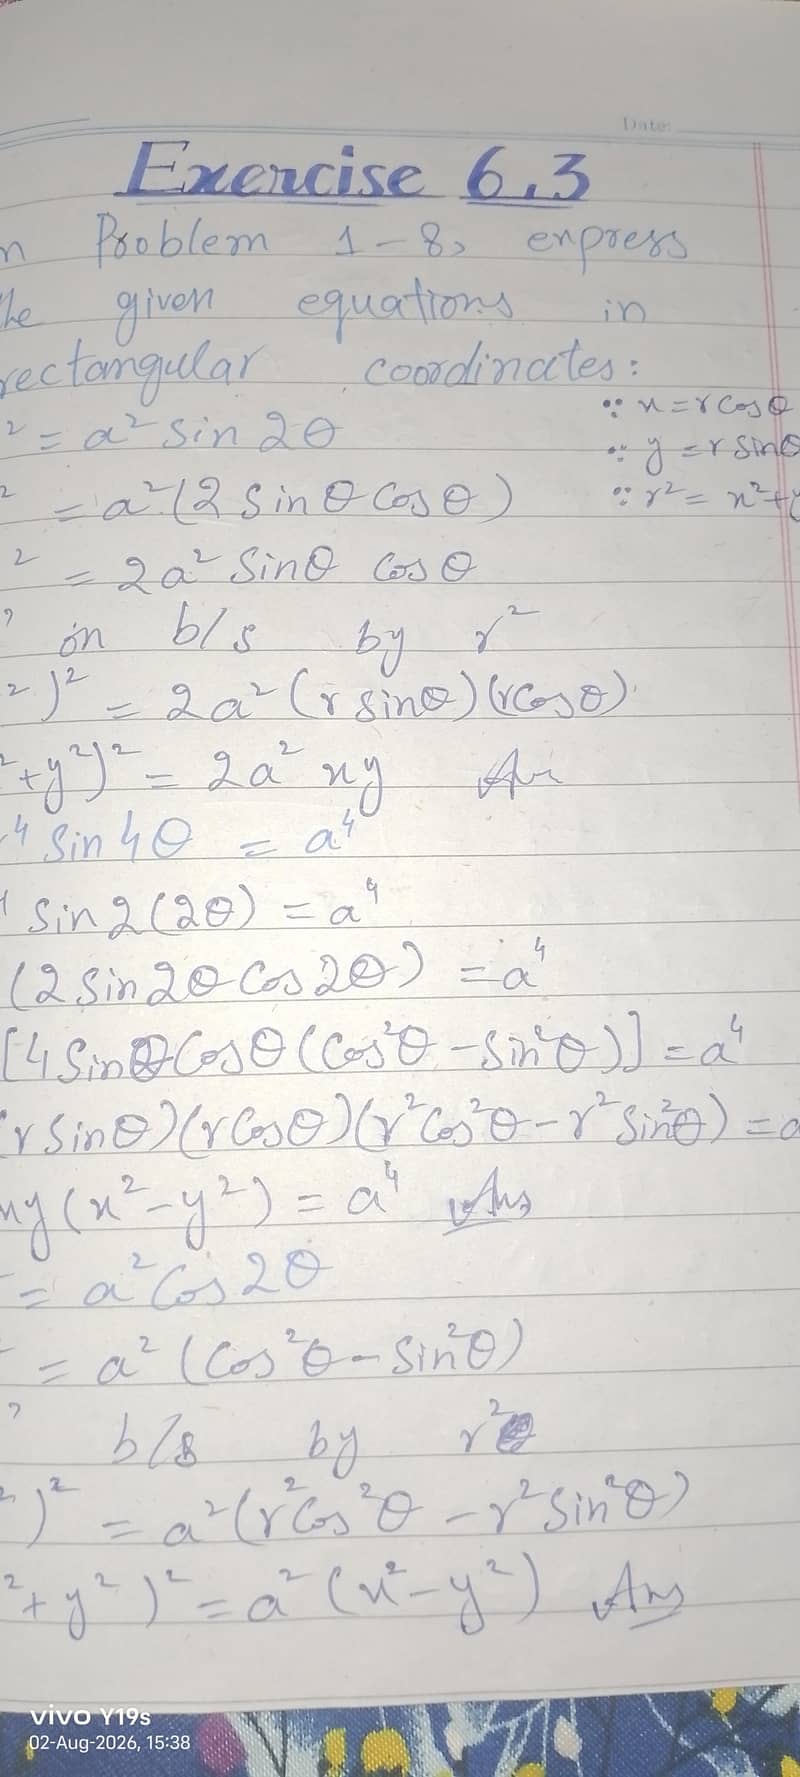 Date:
Exercise 6.3
n Problem 1-8, express
the given equations in
rectangular coordinates:
∵ x=rcosθ
² = a² sin 2θ
∵ y = r sinθ
² = a²(2 Sinθ Cosθ)
∵ r² = x²+y
² = 2a² Sinθ Cosθ
on b/s by r²
²)² = 2a²(r sinθ)(rCosθ)
²+y²)² = 2a² xy
⁴ Sin4θ = a⁴
Sin2(2θ) = a⁴
(2 Sin2θ Cos2θ) = a⁴
[4 Sinθ Cosθ (Cos²θ - Sin²θ)] = a⁴
(r Sinθ)(rCosθ)(r²Cos²θ - r² Sin²θ) = a
xy(x²-y²) = a⁴ Ans
= a² Cos 2θ
= a² (Cos²θ - Sin²θ)
b/s by r²
²)² = a²(r²Cos²θ - r² Sin²θ)
²+y²)² = a²(x²-y²) Ans
vivo Y19s
02-Aug-2026, 15:38